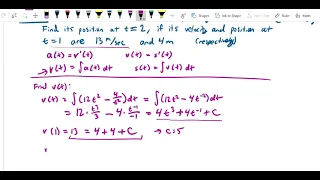 Find its position at t = 2, if its velocity and position at
t = 1 are 13 m/sec and 4 m (respectively)
a(t) = v'(t) v(t) = s'(t)
→ v(t) = ∫a(t)dt s(t) = ∫v(t)dt
Find v(t):
v(t) = ∫(12t² - 4/t²)dt = ∫(12t² - 4t⁻²)dt
= 12 · t³/3 - 4 · t⁻¹/-1 = 4t³ + 4t⁻¹ + C
v(1) = 13 = 4 + 4 + C → C = 5